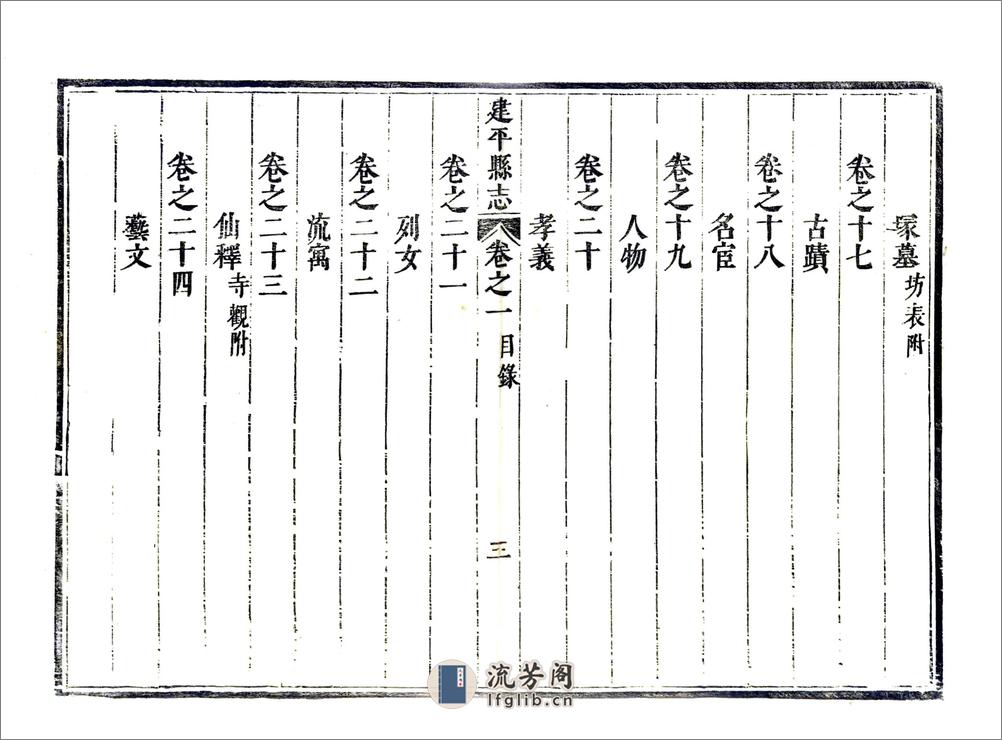 塚墓坊表附
卷之十七
古蹟
卷之十八
名宦
卷之十九
人物
卷之二十
孝義
建平縣志 卷之一 目錄 三
卷之二十一
列女
卷之二十二
流寓
卷之二十三
仙釋寺觀附
卷之二十四
藝文
流芳阁
lfglib.cn